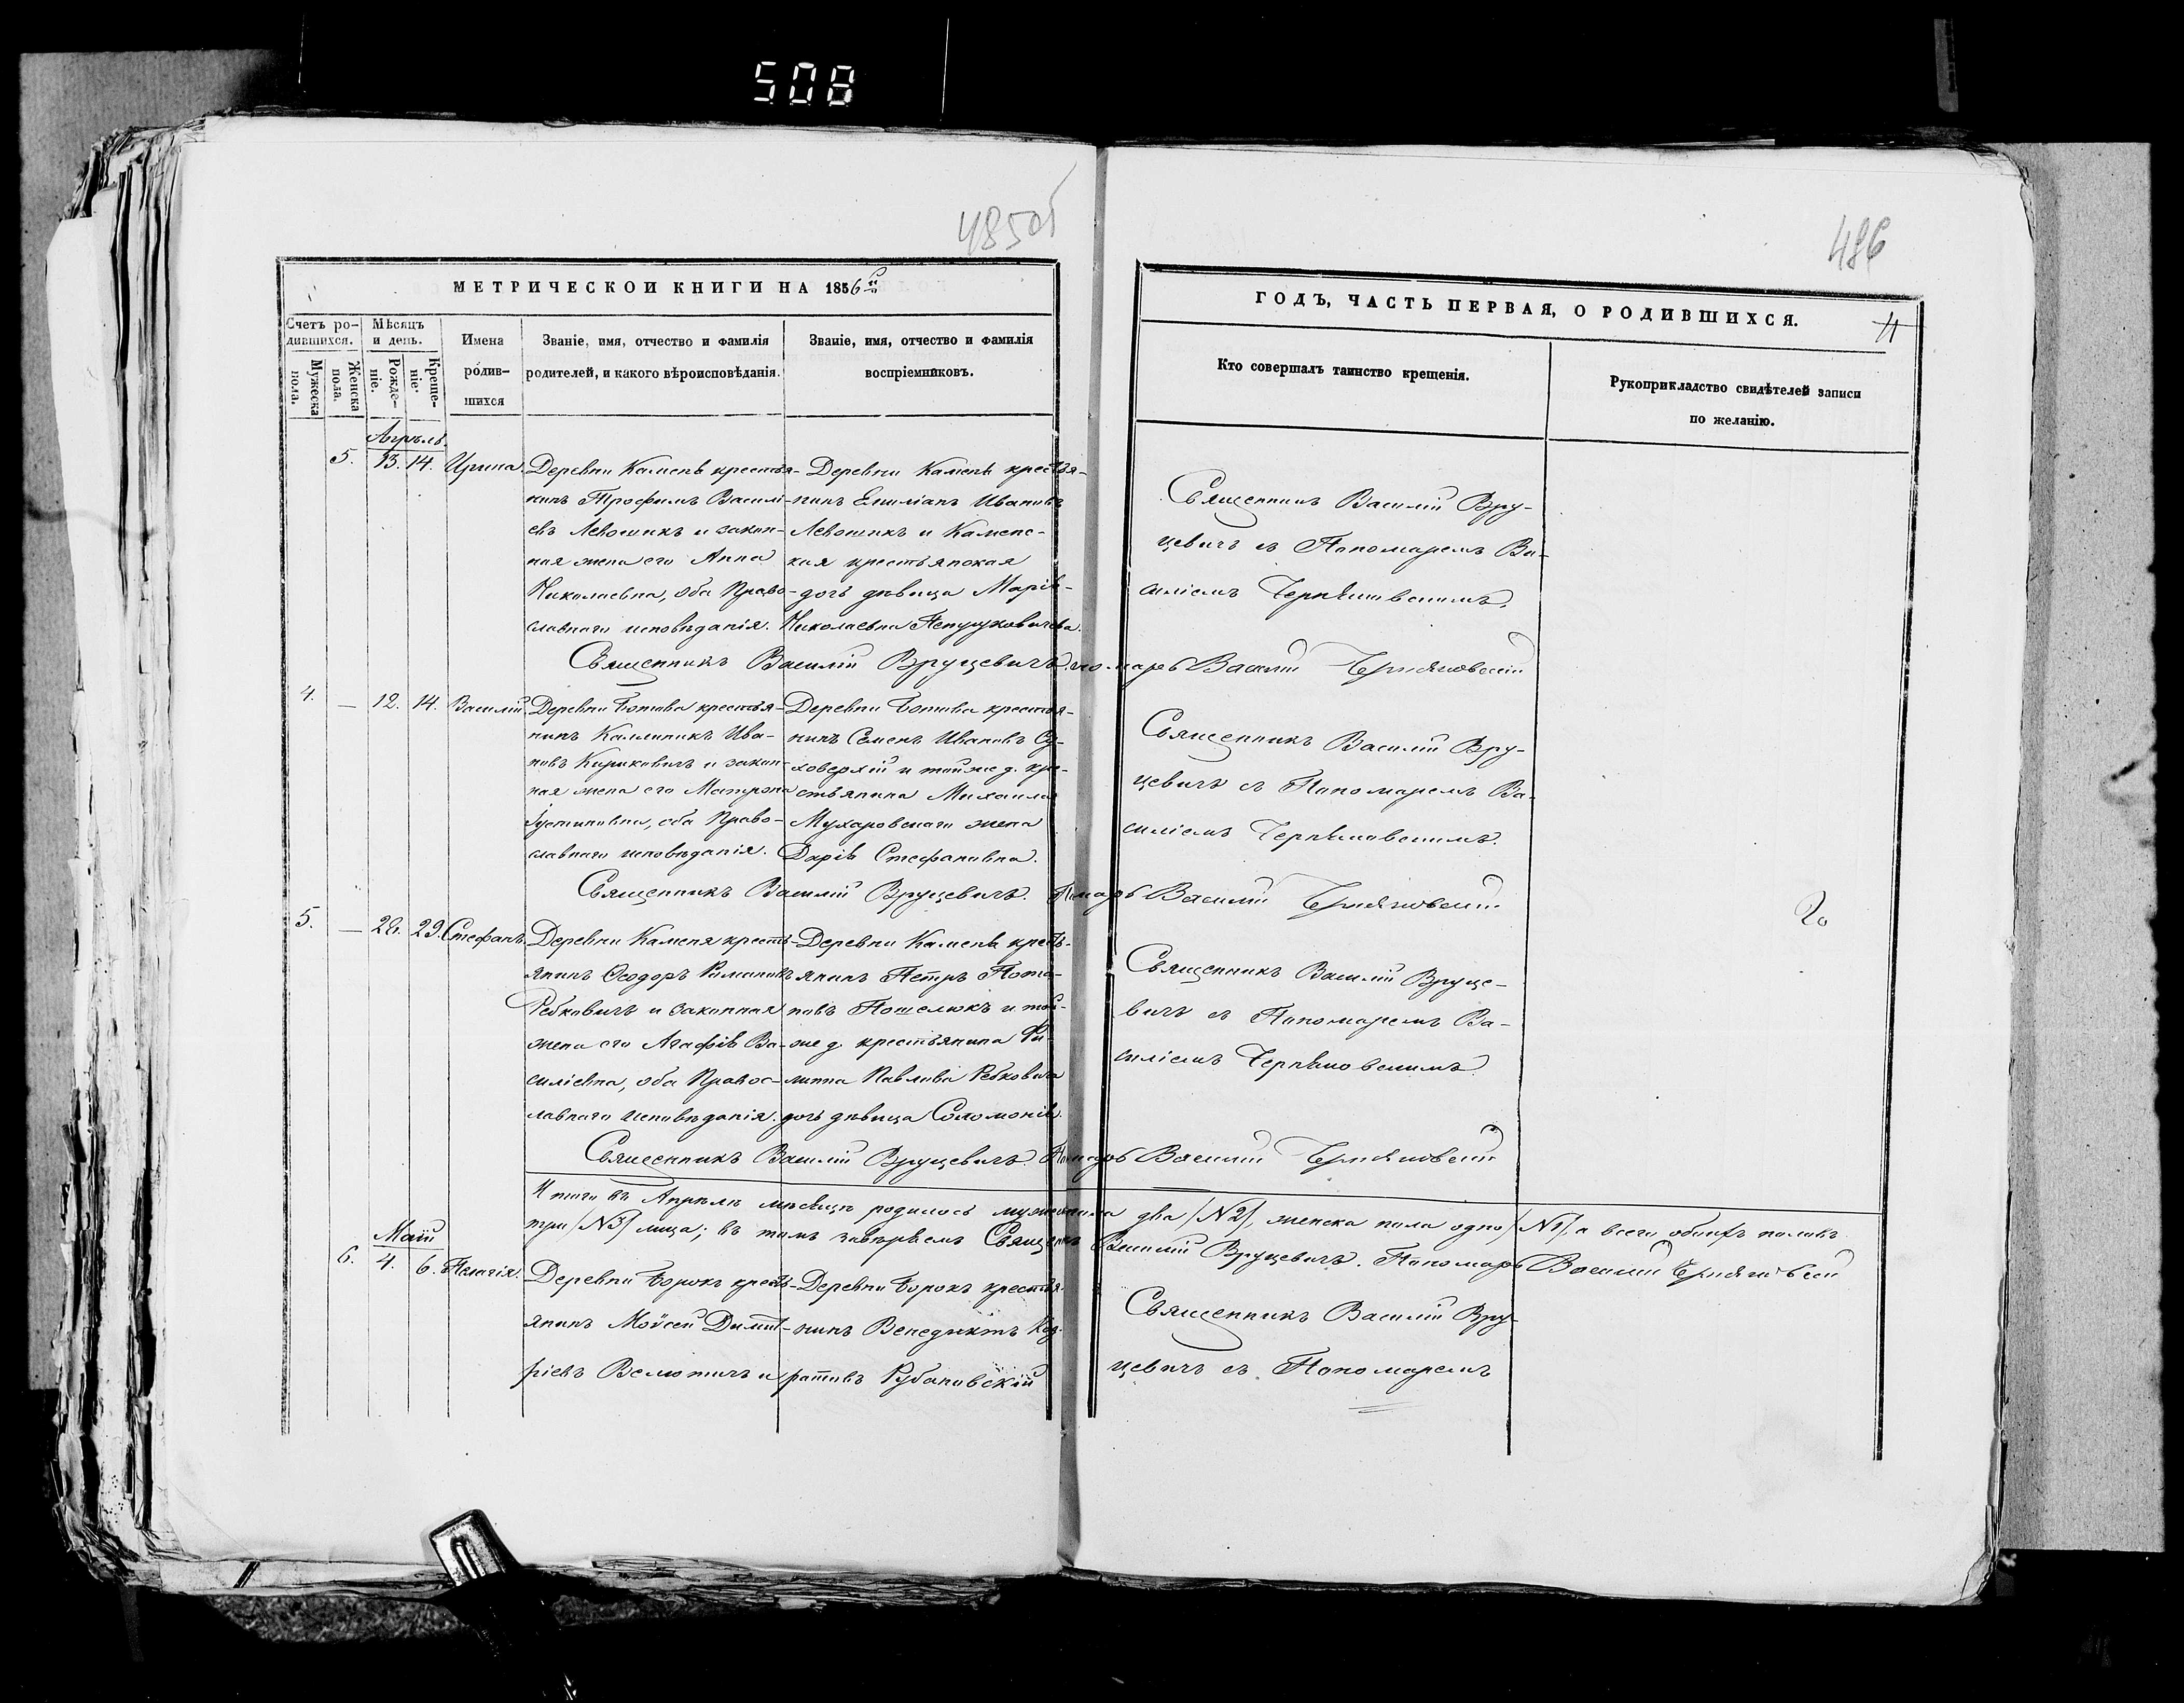 508
485об
486
МЕТРИЧЕСКОИ КНИГИ НА 1856й
ГОДЪ, ЧАСТЬ ПЕРВАЯ, О РОДИВШИХСЯ.
11
Счетъ ро-
дившихся.
Мужеска
пола.
Женска
пола.
Мѣсяцъ
и день.
Рожде-
ніе.
Креще-
ніе.
Имена
родив-
шихся
Званіе, имя, отчество и фамилія
родителей, и какого вѣроисповѣданія.
Званіе, имя, отчество и фамилія
воспріемниковъ.
Кто совершалъ таинство крещенія.
Рукоприкладство свидѣтелей записи
по желанію.
Апрѣль.
5. 13. 14. Ирина.
Деревни Каменѣ крестья-
нинъ Трофимъ Василі-
евъ Левошикъ и закон-
ная жена его Анна
Николаевна, оба Право-
славнаго исповѣданія.
Деревни Каменѣ крестья-
нинъ Емиліанъ Ивановъ
Левошикъ и Каменс-
кая крестьянская
дочь дѣвица Марія
Николаевна
Священникъ Василій Вру-
цевичъ съ Пономаремъ Ва-
силіемъ Черняховскимъ.
Священникъ Василій Вруцевичъ. Пономарь Василій Черняховскій
4. — 12. 14. Василій.
Деревни Ботова крестья-
нинъ Каллиникъ Ива-
новъ Кириковичъ и закон-
ная жена его Матрона
Іустиновна, оба Право-
славнаго исповѣданія.
Деревни Ботова крестья-
нинъ Семенъ Ивановъ Су-
ховерхій и тойже д. кре-
стьянина Михаила
Мухаровскаго жена
Дарія Стефановна.
Священникъ Василій Вру-
цевичъ съ Пономаремъ Ва-
силіемъ Черняховскимъ.
Священникъ Василій Вруцевичъ. Пномарь Василій Черняховскій
5. — 28. 29. Стефанъ.
Деревни Каменя кресть-
янинъ Ѳеодоръ Романовъ
Ребковичъ и законная
жена его Агафія Ва-
силіевна, оба Правос-
лавнаго исповѣданія.
Деревни Каменя кресть-
янинъ Петръ Пота-
повъ Пошелюкъ и той-
же д. крестьянина Фи-
липпа Павлова Ребковича
дочь дѣвица Соломонія.
Священникъ Василій Вруце-
вичъ съ Пономаремъ Ва-
силіемъ Черняховскимъ.
20
Священникъ Василій Вруцевичъ. Пономарь Василій Черняховскій
Итого въ Апрѣлѣ мѣсяцѣ родилось мужеска пола два /№2/, женска пола одно /№1/ а всего обоихъ половъ
три /№3/ лица; въ томъ завѣряемъ Священникъ Василій Вруцевичъ. Пономарь Василій Черняховскій
Маій
6. 4. 6. Пелагія.
Деревни Борокъ кресть-
янинъ Моѵсей Димит-
ріевъ Велютичъ и
Деревни Борокъ крестья-
нинъ Венедиктъ Код-
ратовъ Рубановскій
Священникъ Василій Вру-
цевичъ съ Пономаремъ